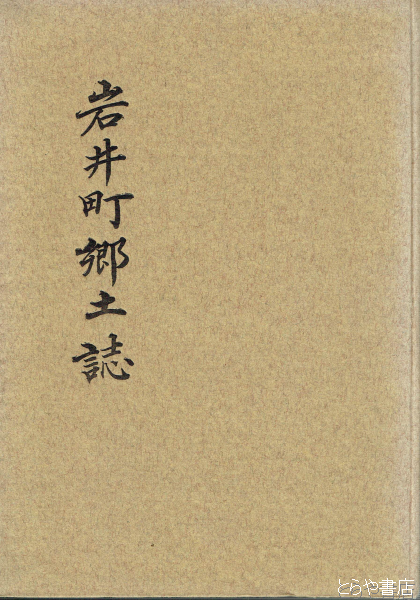 岩井町郷土誌
とらや書店